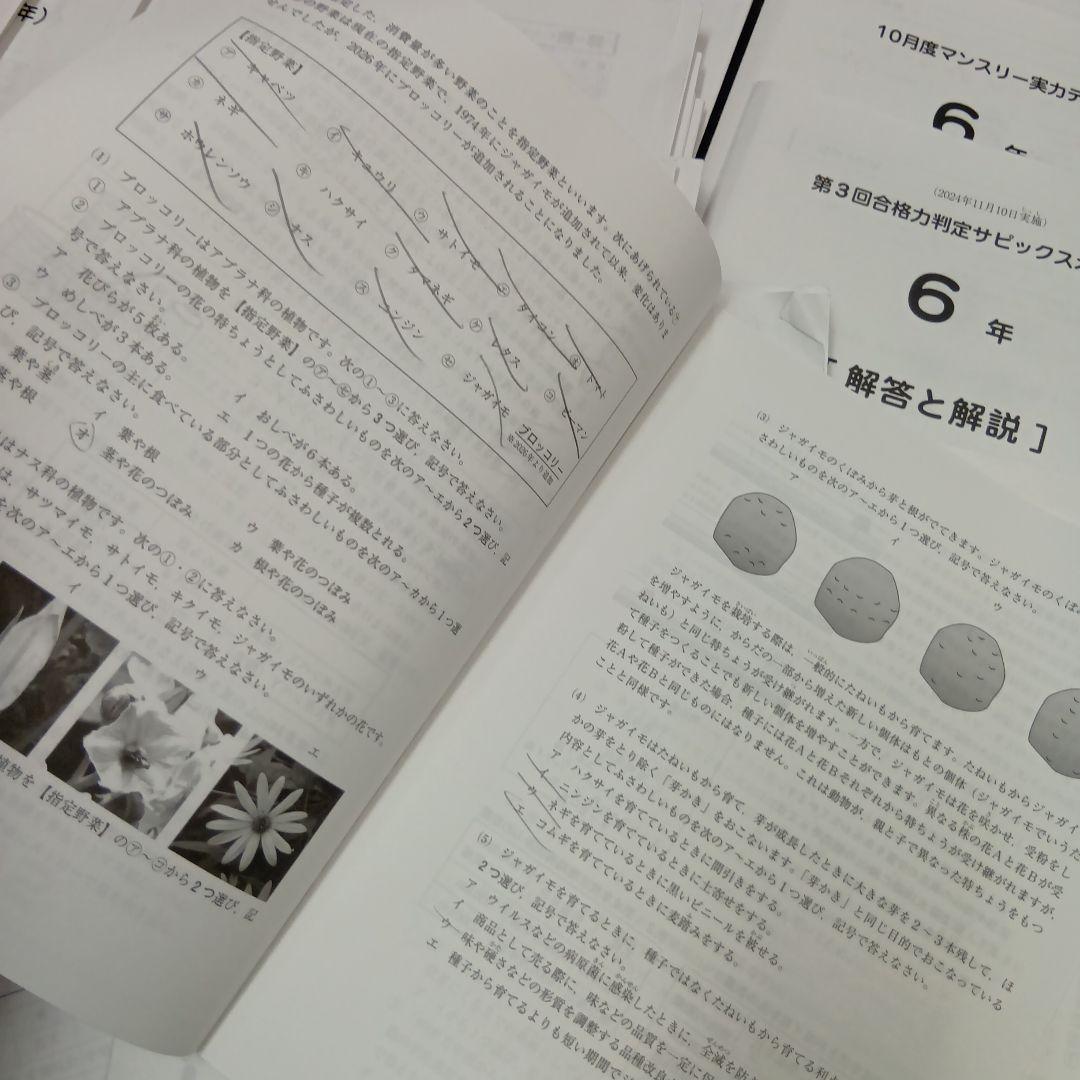 年）
定した、消費量が多い野菜のことを指定野菜といいます。次にあげられているそ
の野菜は現在の指定野菜で、1974年にジャガイモが追加されて以来、変化はありま
せんでしたが、2026年にブロッコリーが追加されることになりました。
【指定野菜】
㋐ キャベツ
㋑ キュウリ
㋒ サトイモ
㋓ ダイコン
㋔ トマト
㋕ ネギ
㋖ ハクサイ
㋗ タマネギ
㋘ レタス
㋙ ピーマン
㋚ ホウレンソウ
㋛ ナス
㋜ ニンジン
㋝ ジャガイモ
ブロッコリー
※2026年より追加
(1) ブロッコリーはアブラナ科の植物です。次の①～③に答えなさい。
① アブラナ科の植物を【指定野菜】の㋐～㋝から3つ選び、記号で答えなさい。
② ブロッコリーの花の特ちょうとしてふさわしいものを次のア～エから2つ選び、記
号で答えなさい。
ア 花びらが5枚ある。
イ おしべが6本ある。
ウ めしべが3本ある。
エ 1つの花から種子が複数とれる。
③ ブロッコリーの主に食べている部分としてふさわしいものを次のア～カから1つ選
び、記号で答えなさい。
葉や茎
イ 葉や根
ウ 葉や花のつぼみ
茎や根
オ 茎や花のつぼみ
カ 根や花のつぼみ
はナス科の植物です。次の①・②に答えなさい。
は、サツマイモ、サトイモ、キクイモ、ジャガイモのいずれかの花です。
を次のア～エから1つ選び、記号で答えなさい。
イ
ウ
エ
植物を【指定野菜】の㋐～㋝から2つ選び、記
10月度マンスリー実力テ
6年
(2024年11月10日実施)
第3回合格力判定サピックスオ
6年
[解答と解説]
(3) ジャガイモのくぼみから芽と根がでてきます。ジャガイモのくぼ
さわしいものを次のア～エから1つ選び、記号で答えなさい。
ア
イ
ウ
ジャガイモを栽培する際は、一般的にたねいもから育てます。たねいもからジャガイ
を増やすように、からだの一部から増えた新しい個体はもとの個体（ジャガイモでいうた
ねいも）と同じ特ちょうが受け継がれます。一方で、ジャガイモは花を咲かせ、受粉をし
て種子をつくることでも新しい個体を増やすことができます。異なる株の花Aと花Bが受
粉して種子ができた場合、種子には花Aと花Bそれぞれから特ちょうが受け継がれますが、
花Aや花Bと同じものにはなりません。これは動物が、親と子で異なった特ちょうをもつ
ことと同様です。
(4) ジャガイモはたねいもから育て、芽が成長したときに大きな芽を2～3本残して、ほ
かの芽をとり除く「芽かき」をおこないます。「芽かき」と同じ目的でおこなっている
内容としてふさわしいものを次のア～エから1つ選び、記号で答えなさい。
ア ハクサイを育てているときに間引きをする。
イ ニンジンを育てているときに土寄せをする。
ウ ネギを育てているときに黒いビニールを被せる。
エ コムギを育てているときに麦踏みをする。
(5) ジャガイモを育てるときに、種子ではなくたねいもから育てる利
2つ選び、記号で答えなさい。
ア ウイルスなどの病原菌に感染したときに、全滅を防
イ 商品として売る際に、味などの品質を一定に
ウ 味や硬さなどの形質を調整する品種改良
エ 種子から育てるよりも短い期間で